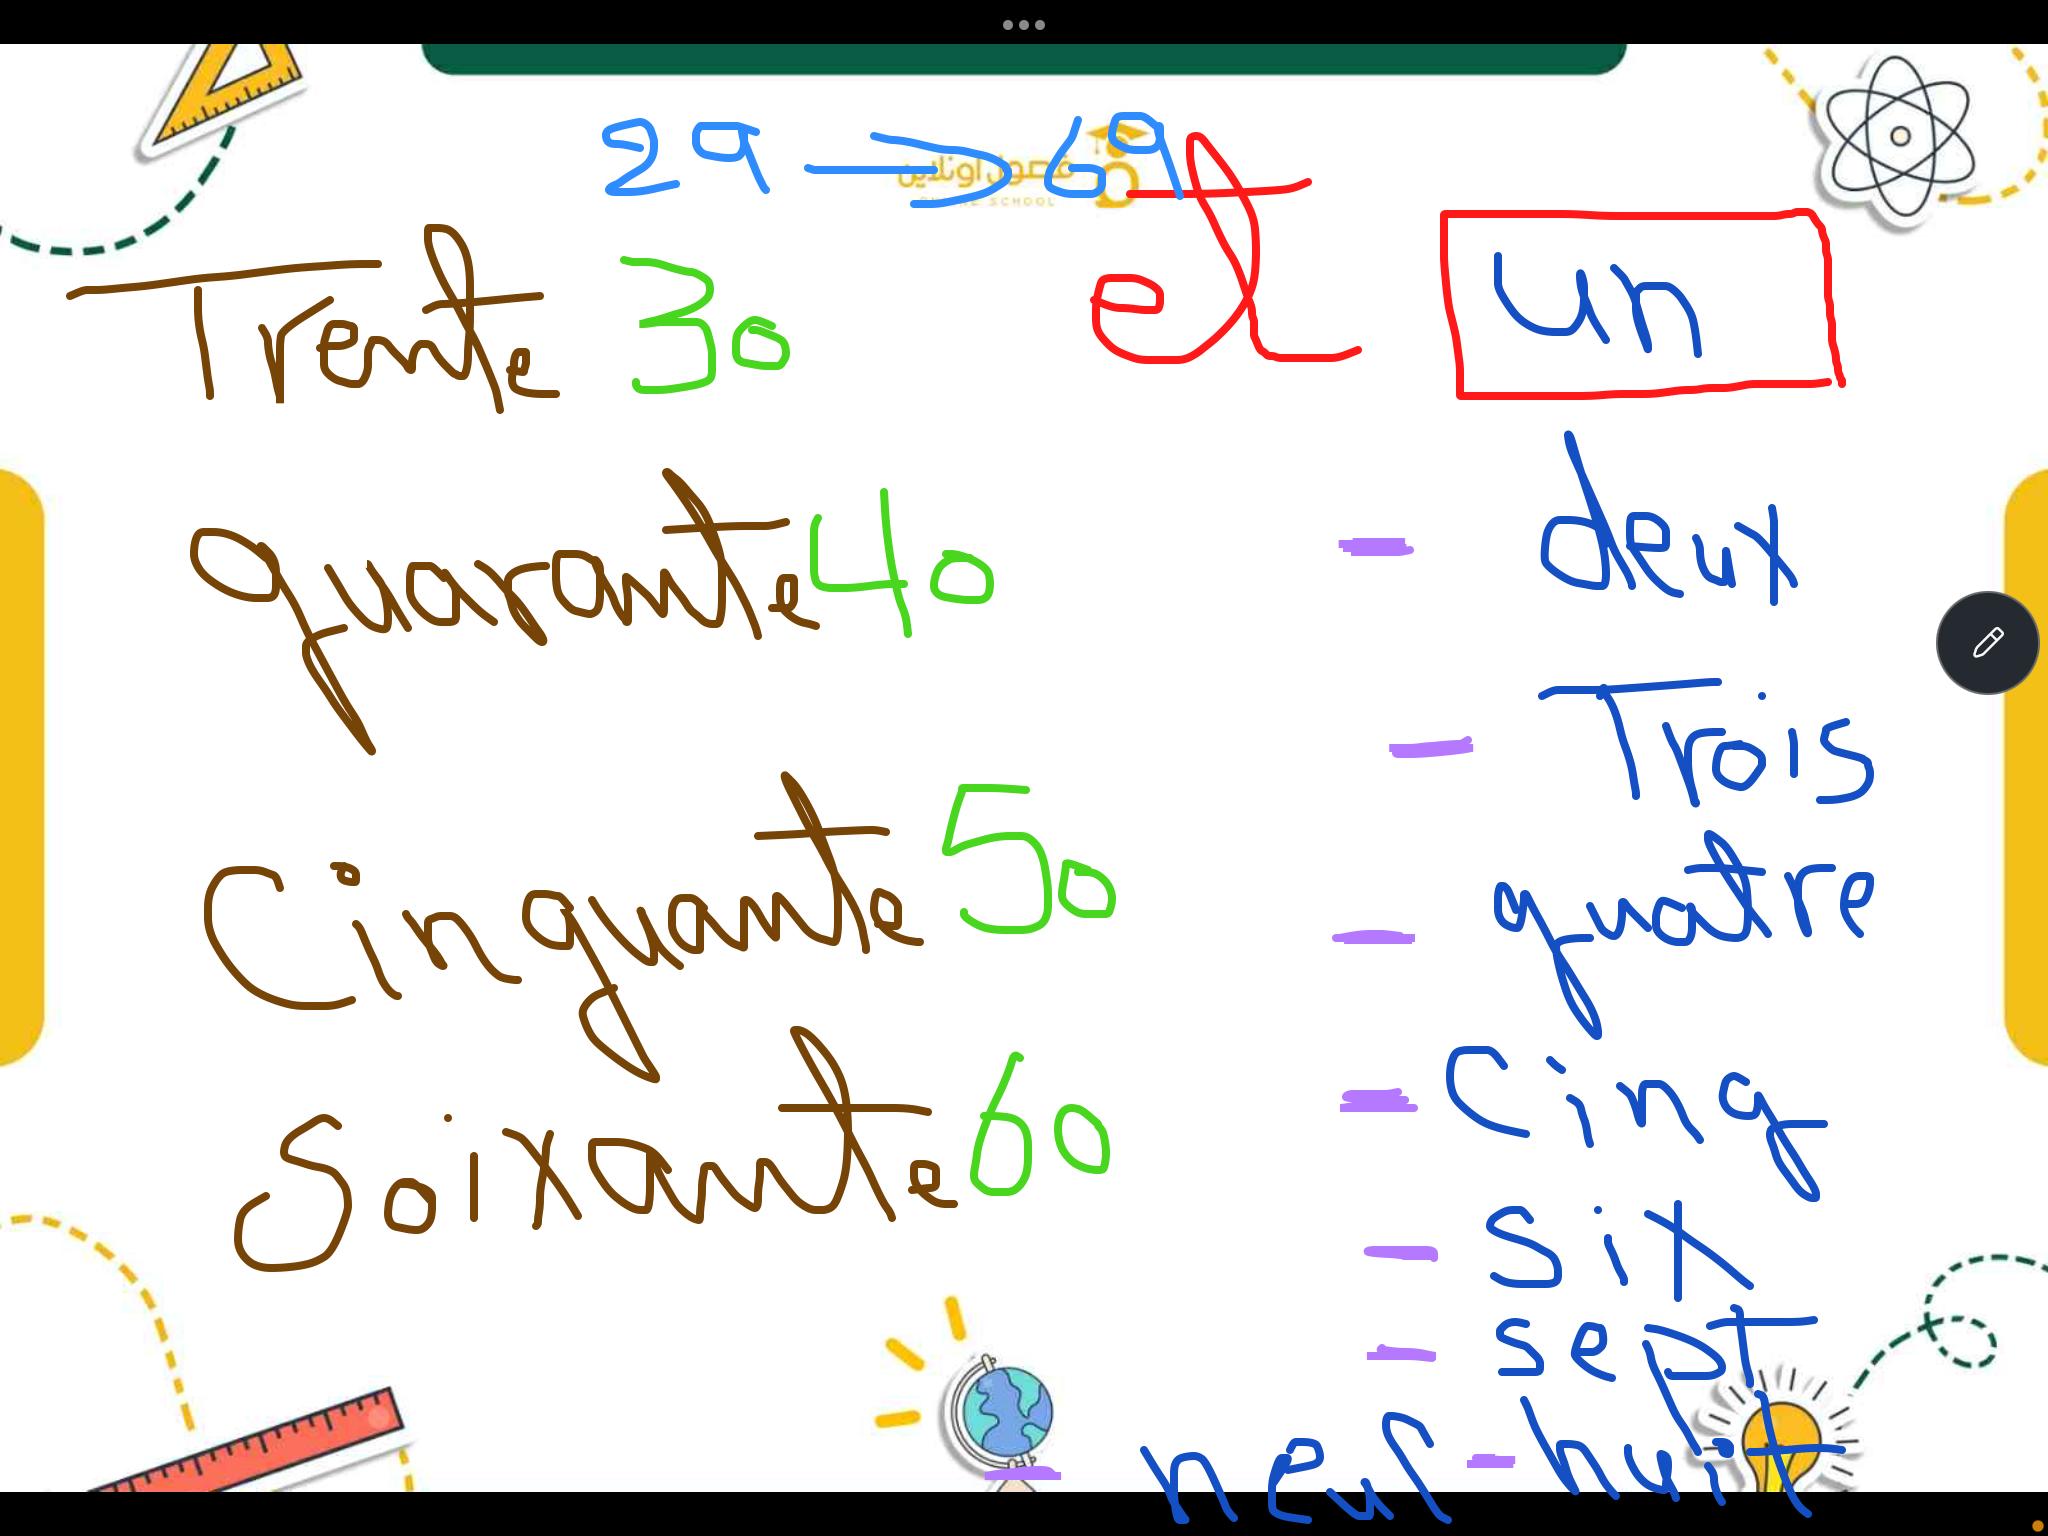 29 → 69
فصول اونلاين
ONLINE SCHOOL
Trente 30 et un
quarante 40 - deux
- Trois
Cinquante 50 - quatre
Soixante 60 - Cinq
- Six
- sept
- neuf - huit